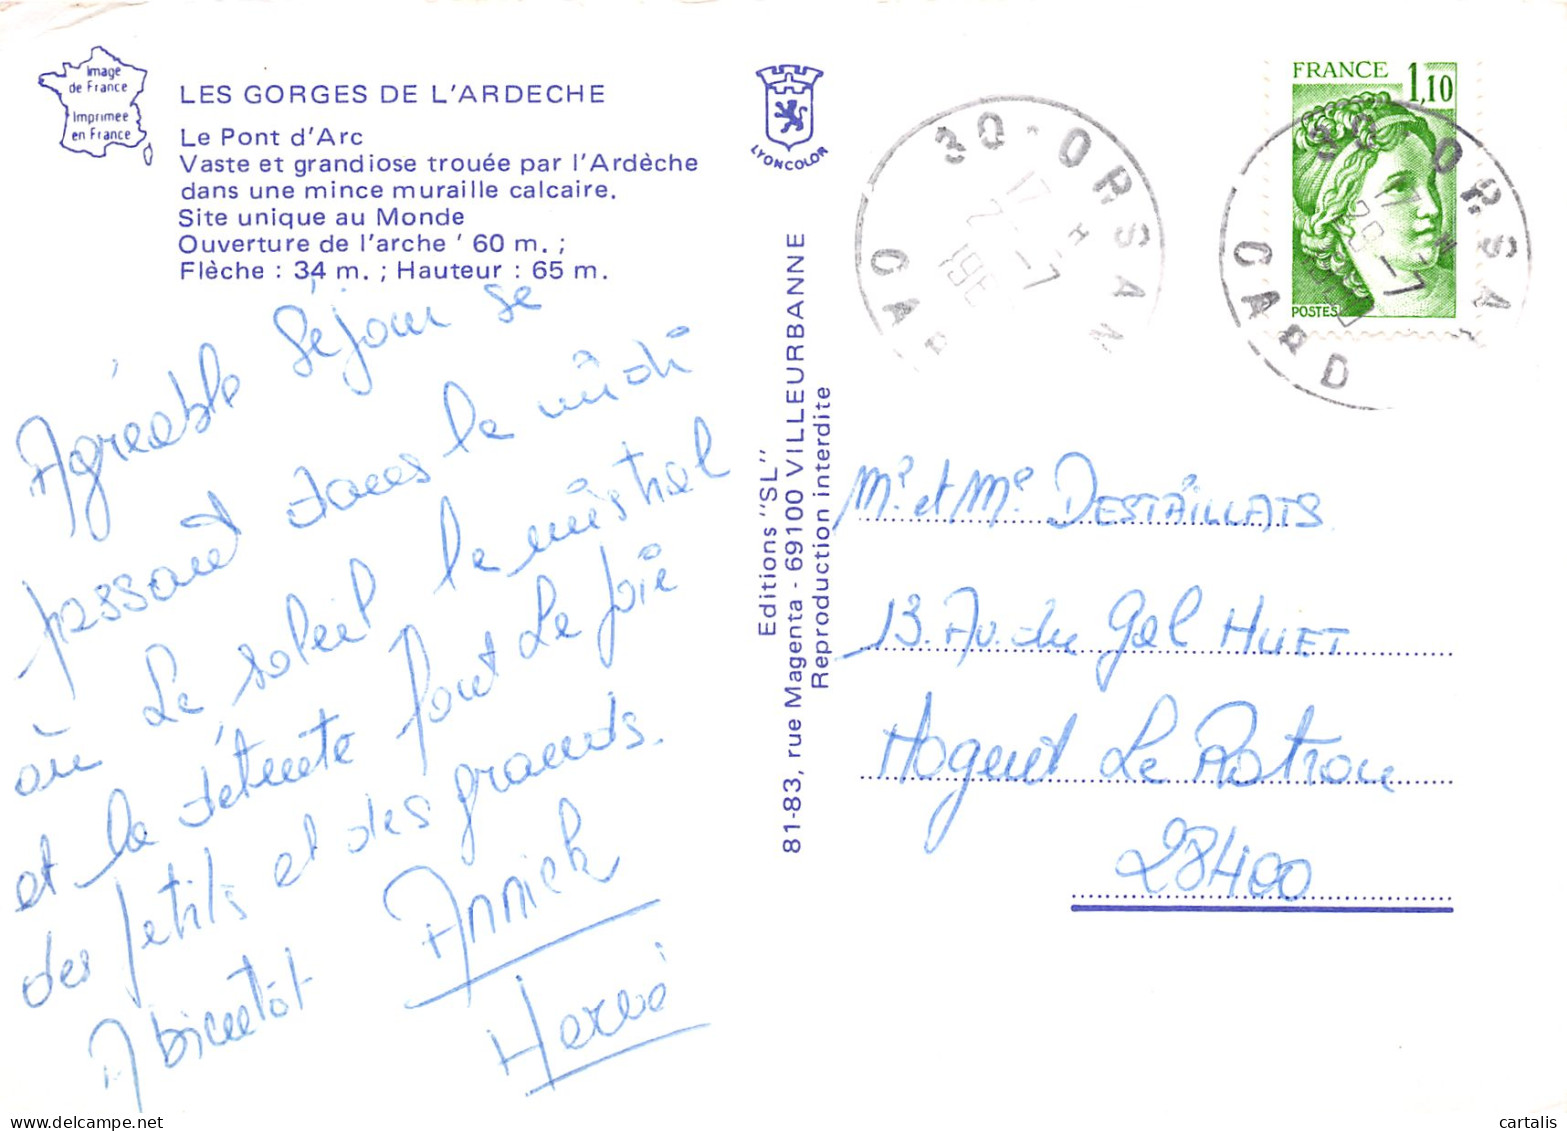 Image
de France
Imprimée
en France
LES GORGES DE L'ARDECHE
Le Pont d'Arc
Vaste et grandiose trouée par l'Ardèche
dans une mince muraille calcaire.
Site unique au Monde
Ouverture de l'arche ' 60 m. ;
Flèche : 34 m. ; Hauteur : 65 m.
Agréable séjour se
passant dans le midi
où le soleil le mistral
et la détente font la joie
des petits et des grands.
A bientôt Annick
Hervé
LYONCOLOR
Editions "SL"
81-83, rue Magenta - 69100 VILLEURBANNE
Reproduction interdite
30 - ORSAN
17 H
2 -7
198
GARD
FRANCE 1,10
POSTES
30 - ORSAN
17 H
28 -7
GARD
Mr et Me DESTAILLATS
13. Av. du Gal HUET
Nogent Le Rotrou
28400
cartalis